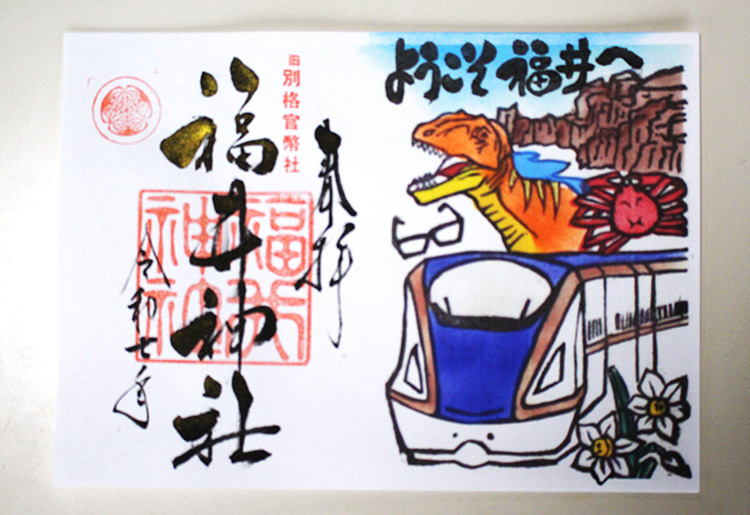 ようこそ福井へ
奉拝
旧別格官幣社
福井神社
令和七年